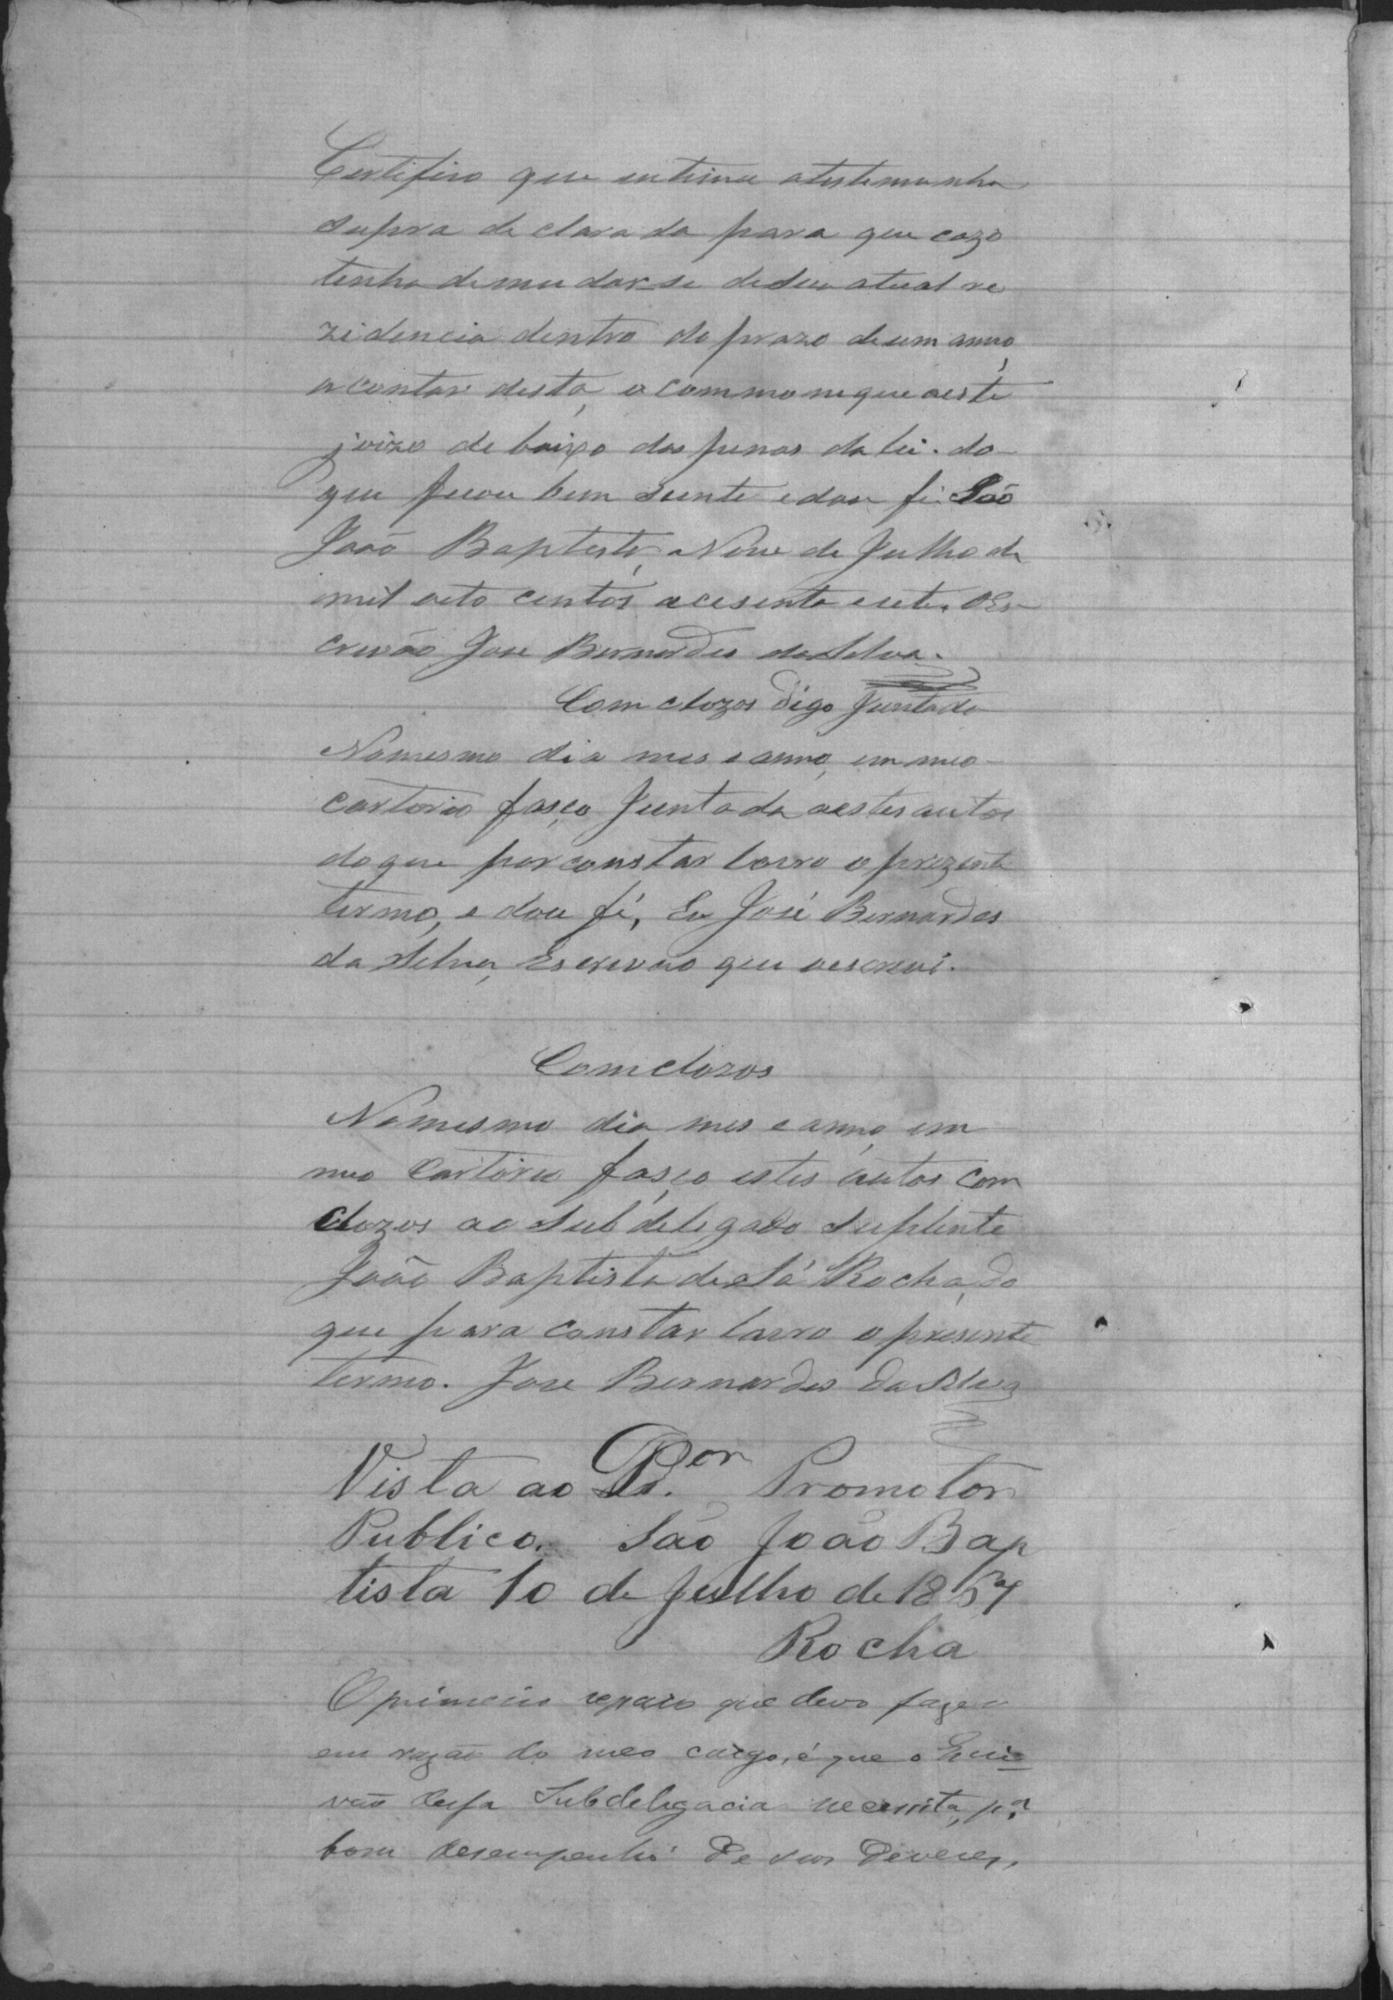 Certifico que intimei atestemunha
supra declarada para que cazo
tenha de mudar se de seu atual re
zidencia dentro do prazo de um anno,
a contar desta, o commonique a este
joizo debaixo das penas da lei. do
que ficou bem siente e dou fé. São
João Baptista, Nove de Julho de
mil oito centos a cesenta e sete. O Es-
crivão Jose Bernardes da Silva.
Com clozos digo Juntada
No mesmo dia mes e anno, em meo
cartorio fasço Juntada aestes autos
do que por constar lavro o prezente
termo, e dou fé, Eu José Bernardes
da Silva, Escrivão que o escrevi.
Comclozos
No mesmo dia mes e anno, em
meo Cartorio fasço estes autos com
clozos ao Sub delegado Suplente
João Baptista de Sá Rocha, do
que para constar lavro o presente
termo. Jose Bernardes da Silva
Vista ao Dr. Promotor
Publico. São João Bap
tista 10 de Julho de 1867
Rocha
O primeiro reparo que devo fazer
em razão do meo cargo, é que o Escri=
vão desta Subdelegacia necessita, pa.
bom desempenho de seos deveres,